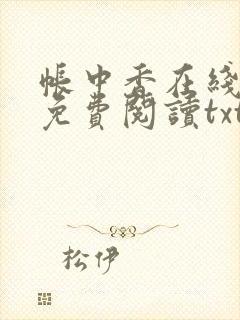 帳中香在綫
免費閱讀txt
松伊